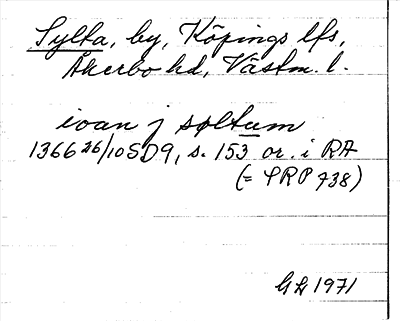 Sylta, by, Köpings lfs,
Åkerbo hd, Västm. l.
ioan j søltum
1366 26/10 SD9, s. 153 or. i RA
(= SRP 738)
GL 1971